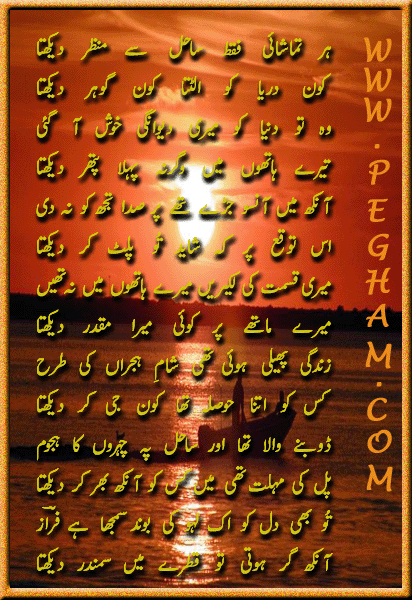 ہر تماشائی فقط ساحل سے منظر دیکھتا
کون دریا کو الٹتا کون گوہر دیکھتا
وہ تو دنیا کو میری دیوانگی خوش آ گئی
تیرے ہاتھوں میں وگرنہ پہلا پتھر دیکھتا
آنکھ میں آنسو جڑے تھے پر صدا تجھ کو نہ دی
اس توقع پر کہ شاید تو پلٹ کر دیکھتا
میری قسمت کی لکیریں میرے ہاتھوں میں نہ تھیں
میرے ماتھے پر کوئی میرا مقدر دیکھتا
زندگی پھیلی ہوئی تھی شامِ ہجراں کی طرح
کس کو اتنا حوصلہ تھا کون جی کر دیکھتا
ڈوبنے والا تھا اور ساحل پہ چہروں کا ہجوم
پل کی مہلت تھی میں کس کو آنکھ بھر کر دیکھتا
تُو بھی دل کو اک لہو کی بوند سمجھا ہے فرازؔ
آنکھ گر ہوتی تو قطرے میں سمندر دیکھتا
WWW.PEGHAM.COM